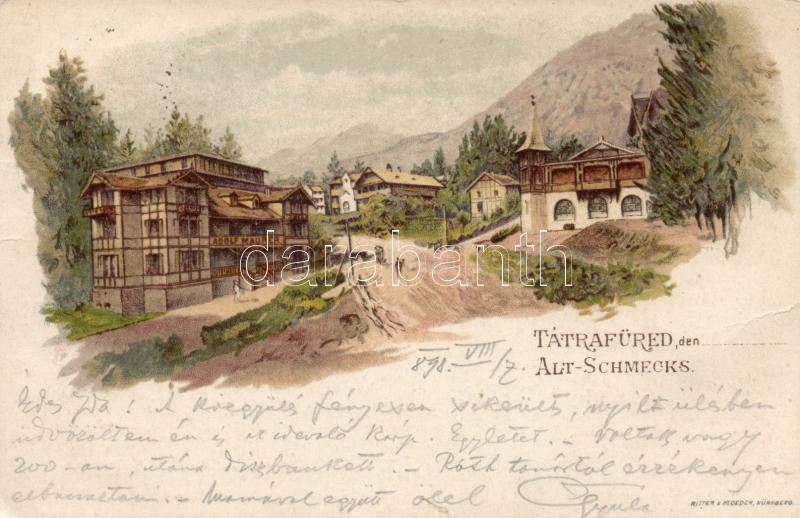 ADOLF
darabanth
TÁTRAFÜRED, den
898. VIII/7.
ALT-SCHMECKS.
Édes Ida! A közgyűlés fényesen sikerült, nyílt ülésben
üdvözöltem én is az idevaló Kárp. Egyletet. – Voltak vagy
200-an, utána díszbankett. – Róth tanártól érzékenyen
elbúcsúztam. – Mamával együtt ölel Gyula
RITTER & KLOEDEN, NÜRNBERG.